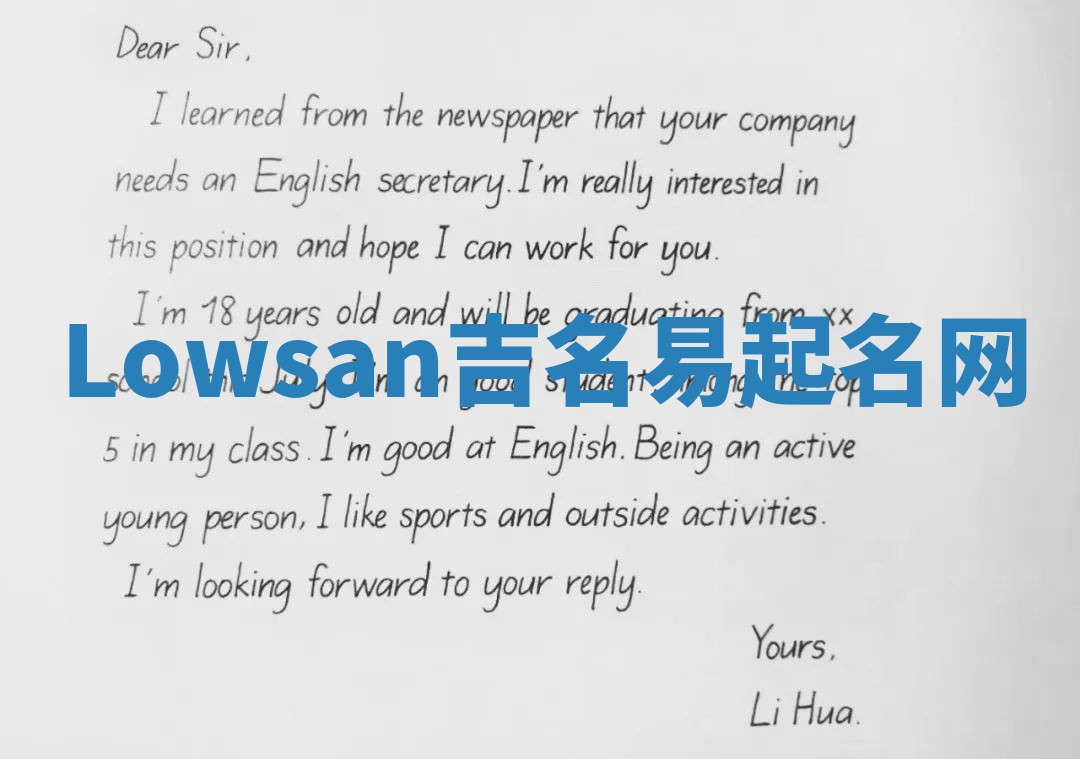 Dear Sir,
I learned from the newspaper that your company
needs an English secretary. I'm really interested in
this position and hope I can work for you.
I'm 18 years old and will be graduating from xx
Lowsan吉名易起名网
school this July. I'm an good student among the top
5 in my class. I'm good at English. Being an active
young person, I like sports and outside activities.
I'm looking forward to your reply.
Yours,
Li Hua.